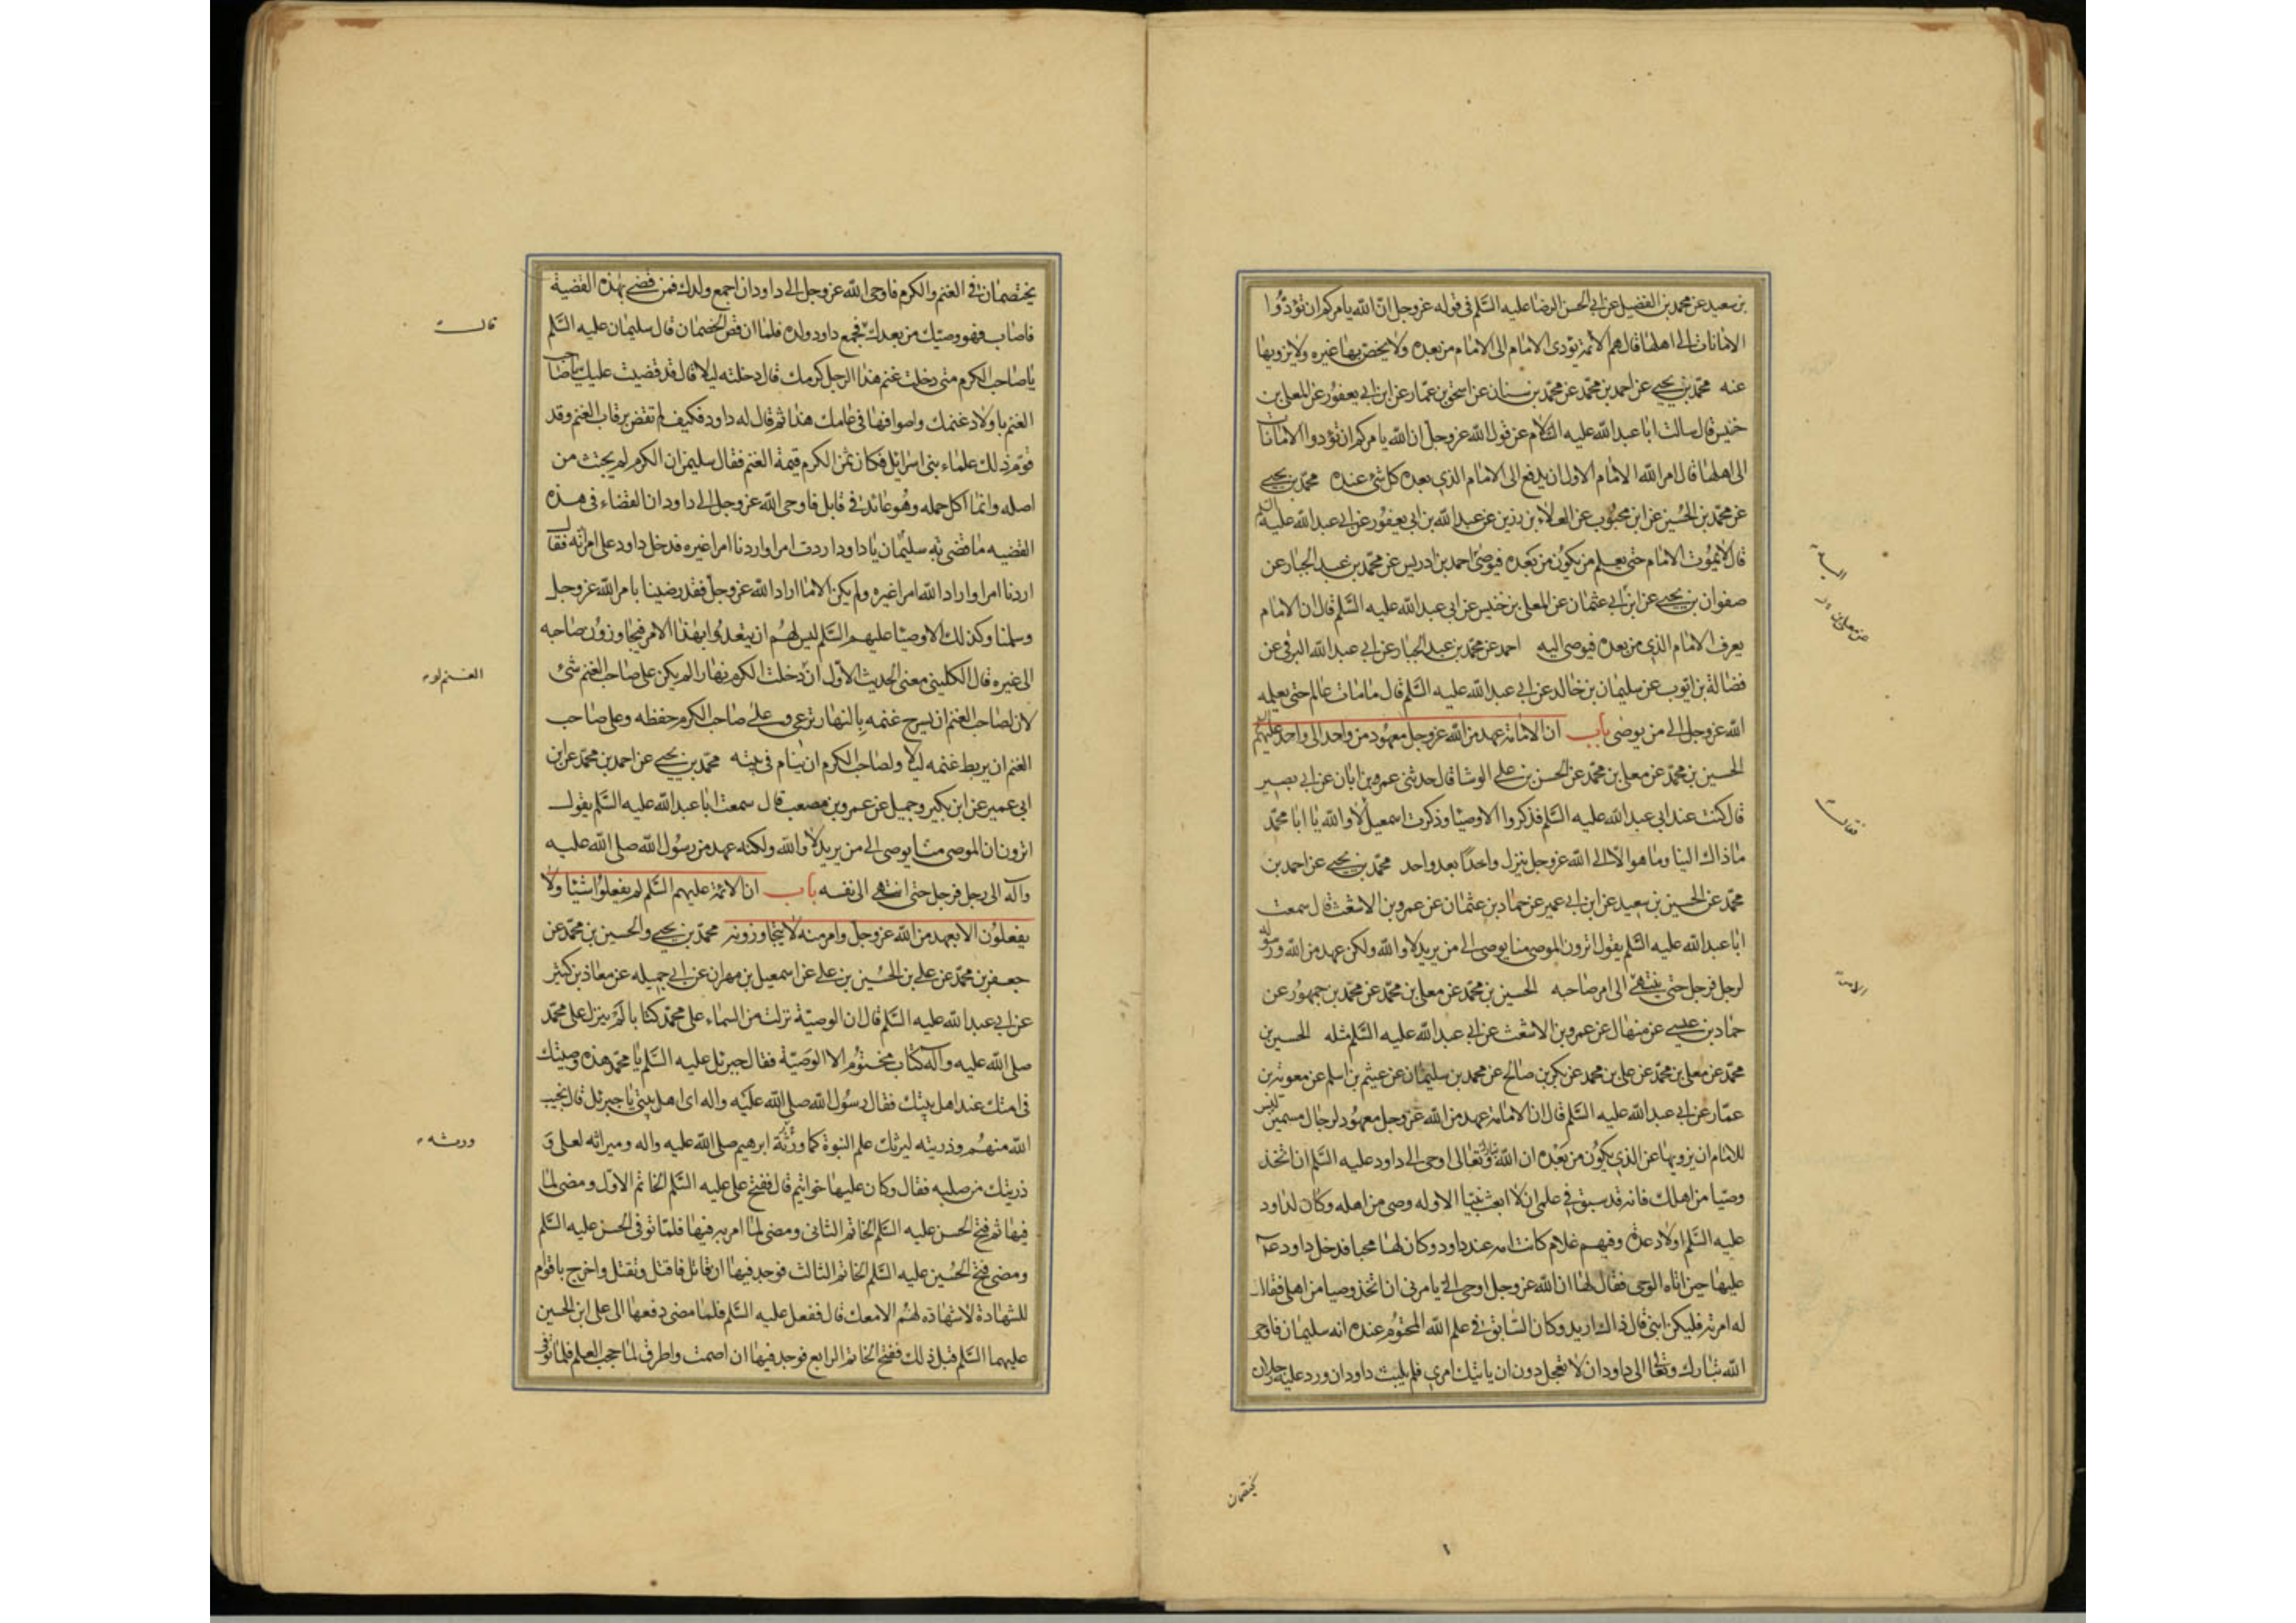 بن سعيد عن محمد بن الفضيل عن ابي الحسن الرضا عليه السَّلم فى قوله عز وجل انّ الله يامركم ان تؤدّوا
الامانات الى اهلها قال هم الائمة يؤدى الامام الى الامام من بعده ولا يخصّ بها غيره ولا يزويها
عنه محمّد بن يحيى عن احمد بن محمّد عن محمّد بن سنان عن اسحق بن عمّار عن ابن ابي يعفور عن المعلى بن
خنيس قال سالت ابا عبد الله عليه السلام عن قول الله عز وجل ان الله يامركم ان تؤدوا الامانات
الى اهلها قال امر الله الامام الاول ان يدفع الى الامام الذي بعده كل شئ عنده محمّد بن يحيى
عن محمّد بن الحسين عن ابن محبوب عن العلاء بن رزين عن عبد الله بن ابي يعفور عن ابي عبد الله عليه السلم
قال لا يموت الامام حتى يعلم من يكون من بعده فيوصى احمد بن ادريس عن محمّد بن عبد الجبار عن
صفوان بن يحيى عن ابن ابي عثمان عن المعلى بن خنيس عن ابي عبد الله عليه السَّلم قال ان الامام
يعرف الامام الذي من بعده فيوصى اليه احمد عن محمّد بن عبد الجبار عن ابي عبد الله البرقى عن
فضالة بن ايّوب عن سليمان بن خالد عن ابي عبد الله عليه السَّلم قال ما مات عالم حتى يعلمه
الله عز وجل الى من يوصى باب ان الامامة عهد من الله عز وجل معهود من واحد الى واحد عليهم
الحسين بن محمّد عن معلى بن محمّد عن الحسن بن على الوشا قال حدثنى عمر بن ابان عن ابى بصير
قال كنت عند ابى عبد الله عليه السَّلم فذكروا الاوصيا وذكرت اسمعيل لا والله يا ابا محمّد
ما ذاك الينا وما هو الا الى الله عز وجل ينزل واحدًا بعد واحد محمّد بن يحيى عن احمد بن
محمّد عن الحسين بن سعيد عن ابن ابي عمير عن حماد بن عثمان عن عمرو بن الاشعث قال سمعت
ابا عبد الله عليه السَّلم يقول اترون الموصى منا يوصى الى من يريد لا والله ولكن عهد من الله ورسوله
لرجل فرجل حتى ينتهى الى امر صاحبه الحسين بن محمّد عن معلى بن محمّد عن محمّد بن جمهور عن
حماد بن عيسى عن منهال عن عمرو بن الاشعث عن ابى عبد الله عليه السَّلم مثله الحسين بن
محمّد عن معلى بن محمّد عن على بن محمد عن بكر بن صالح عن محمد بن سليمان عن عيثم بن اسلم عن معوية بن
عمّار عن ابي عبد الله عليه السَّلم قال ان الامامة عهد من الله عز وجل معهود لرجال مسمين ليس
للامام ان يزويها عن الذي يكون من بعده ان الله تبارك وتعالى اوحى الى داود عليه السَّلم ان اتخذ
وصيّا من اهلك فانه قد سبق فى علمى ان لا ابعث نبيّا الا وله وصى من اهله وكان لداود
عليه السَّلم اولاد عدة وفيهم غلام كانت امه عند داود وكان لها محبا فدخل داود ع
عليها حين اتاه الوحى فقال لها ان الله عز وجل اوحى الى يامرنى ان اتخذ وصيا من اهلى فقال
له امرته فليكن ابنى قال ذاك اريد وكان السّابق فى علم الله المحتوم عنده انه سليمان فاوحى
الله تبارك وتعالى الى داود ان لا تعجل دون ان ياتيك امرى فلم يلبث داود ان ورد عليه رجلان
فقالت
يختصمان
يختصمان فى الغنم والكرم فاوحى الله عز وجل الى داود ان اجمع ولدك فمن قضى بهذه القضية
فاصاب فهو وصيّك من بعدك فجمع داود ولده فلما ان قص الخصمان قال سليمان عليه السَّلم
يا صاحب الكرم متى دخلت غنم هذا الرجل كرمك قال دخلته ليلا قال قد قضيت عليك يا صاحب
الغنم باولاد غنمك واصوافها فى عامك هذا ثم قال له داود فكيف لم تقض برقاب الغنم وقد
قوّم ذلك علماء بنى اسرائل فكان ثمن الكرم قيمة الغنم فقال سليمن ان الكرم لم يجتث من
اصله وانما اكل حمله وهو عائد فى قابل فاوحى الله عز وجل الى داود ان القضاء فى هذه
القضيه ما قضى به سليمان يا داود اردت امرا واردنا امرا غيره فدخل داود على امرأته فقال
اردنا امرا واراد الله امرا غيره ولم يكن الا ما اراد الله عز وجل فقد رضينا بامر الله عز وجل
وسلمنا وكذلك الاوصيا عليهم السَّلم ليس لهم ان يتعدوا بهذا الامر فيجاوزون صاحبه
الى غيره قال الكلينى معنى الحديث الاوّل ان دخلت الكرم نهارا لم يكن على صاحب الغنم شئ
لان لصاحب الغنم ان يسرح غنمه بالنهار ترعى وعلى صاحب الكرم حفظه وعلى صاحب
الغنم ان يربط غنمه ليلا ولصاحب الكرم ان ينام فى بيته محمّد بن يحيى عن احمد بن محمّد عن ابن
ابى عمير عن ابن بكير وجميل عن عمرو بن مصعب قال سمعت ابا عبد الله عليه السَّلم يقول
اترون ان الموصى منا يوصى الى من يريد لا والله ولكنه عهد من رسول الله صلى الله عليه
وآله الى رجل فرجل حتى انتهى الى نفسه باب ان الائمة عليهم السَّلم لم يفعلوا شيئا ولا
يفعلون الا بعهد من الله عز وجل وامر منه لا يتجاوزونه محمّد بن يحيى والحسين بن محمّد عن
جعفر بن محمّد عن على بن الحسين بن على عن اسمعيل بن مهران عن ابى جميله عن معاذ بن كثير
عن ابى عبد الله عليه السَّلم قال ان الوصيّة نزلت من السماء على محمّد كتابا لم ينزل على محمّد
صلى الله عليه وآله كتاب مختوم الا الوصيّة فقال جبرئل عليه السَّلم يا محمّد هذه وصيتك
فى امتك عند اهل بيتك فقال رسول الله صلى الله عليه واله اى اهل بيتى يا جبرئل قال نجيب
الله منهم وذريته ليرثك علم النبوة كما ورثه ابرهيم صلى الله عليه واله وميراثه لعلى و
ذريتك من صلبه فقال وكان عليها خواتيم قال ففتح على عليه السَّلم الخاتم الاوّل ومضى لما
فيها ثم فتح الحسن عليه السَّلم الخاتم الثانى ومضى لما امر به فيها فلمّا توفى الحسن عليه السَّلم
ومضى فتح الحسين عليه السَّلم الخاتم الثالث فوجد فيها ان قاتل فاقتل وتقتل واخرج باقوام
للشهادة لا شهادة لهم الا معك قال ففعل عليه السَّلم فلما مضى دفعها الى على ابن الحسين
عليهما السَّلم قبل ذلك ففتح الخاتم الرابع فوجد فيها ان اصمت واطرق لما حجب العلم فلما توفى
قالت